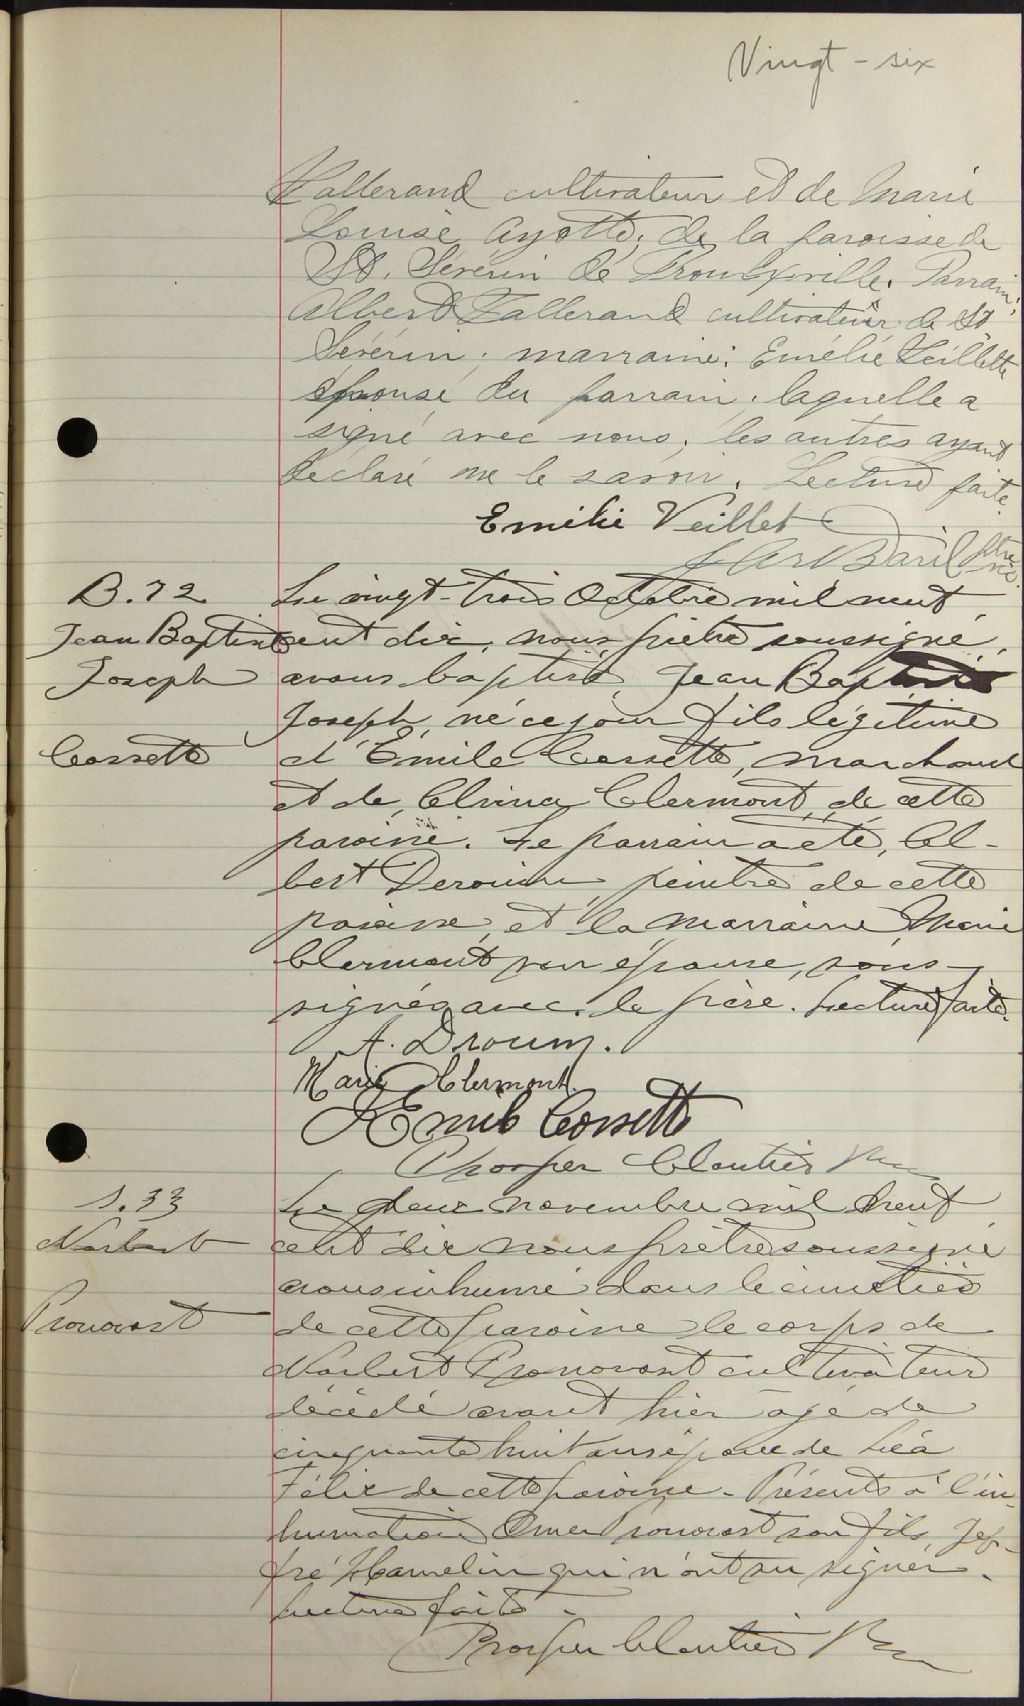 Vingt-six
Vallerand cultivateur et de Marie
Louise Ayotte, de la paroisse de
St. Séverin de Proulxville. Parrain:
Albert Vallerand cultivateur de St
Séverin; marraine: Emélie Veillette
épouse du parrain, laquelle a
signé avec nous, les autres ayant
déclaré ne le savoir. Lecture faite.
Emélie Veillet
Baril Ptre
B. 72
Jean Baptiste
Joseph
Cossette
Le vingt-trois Octobre mil neuf
cent dix, nous, prêtre soussigné,
avons baptisé, Jean Baptiste
Joseph, né ce jour fils légitime
d'Emile Cossette, marchand
et de Clermont, de cette
paroisse. Le parrain a été, Al-
bert Derouin, peintre de cette
paroisse, et la marraine Marie
Clermont son épouse, sous-
signés avec le père. Lecture faite.
A. Drouin.
Marie Clermont
J Emile Cossette
Prosper Cloutier Ptre
S. 33
Norbert
Pronovost
Le deux novembre mil neuf
cent dix nous prêtre soussigné
avons inhumé dans le cimetière
de cette paroisse le corps de
Norbert Pronovost cultivateur
décédé avant hier âgé de
cinquante huit ans époux de Léa
Félix de cette paroisse. Présents à l'in-
humation Omer Pronovost son fils,
Hamelin qui n'ont su signer.
Lecture faite.
Prosper Cloutier Ptre